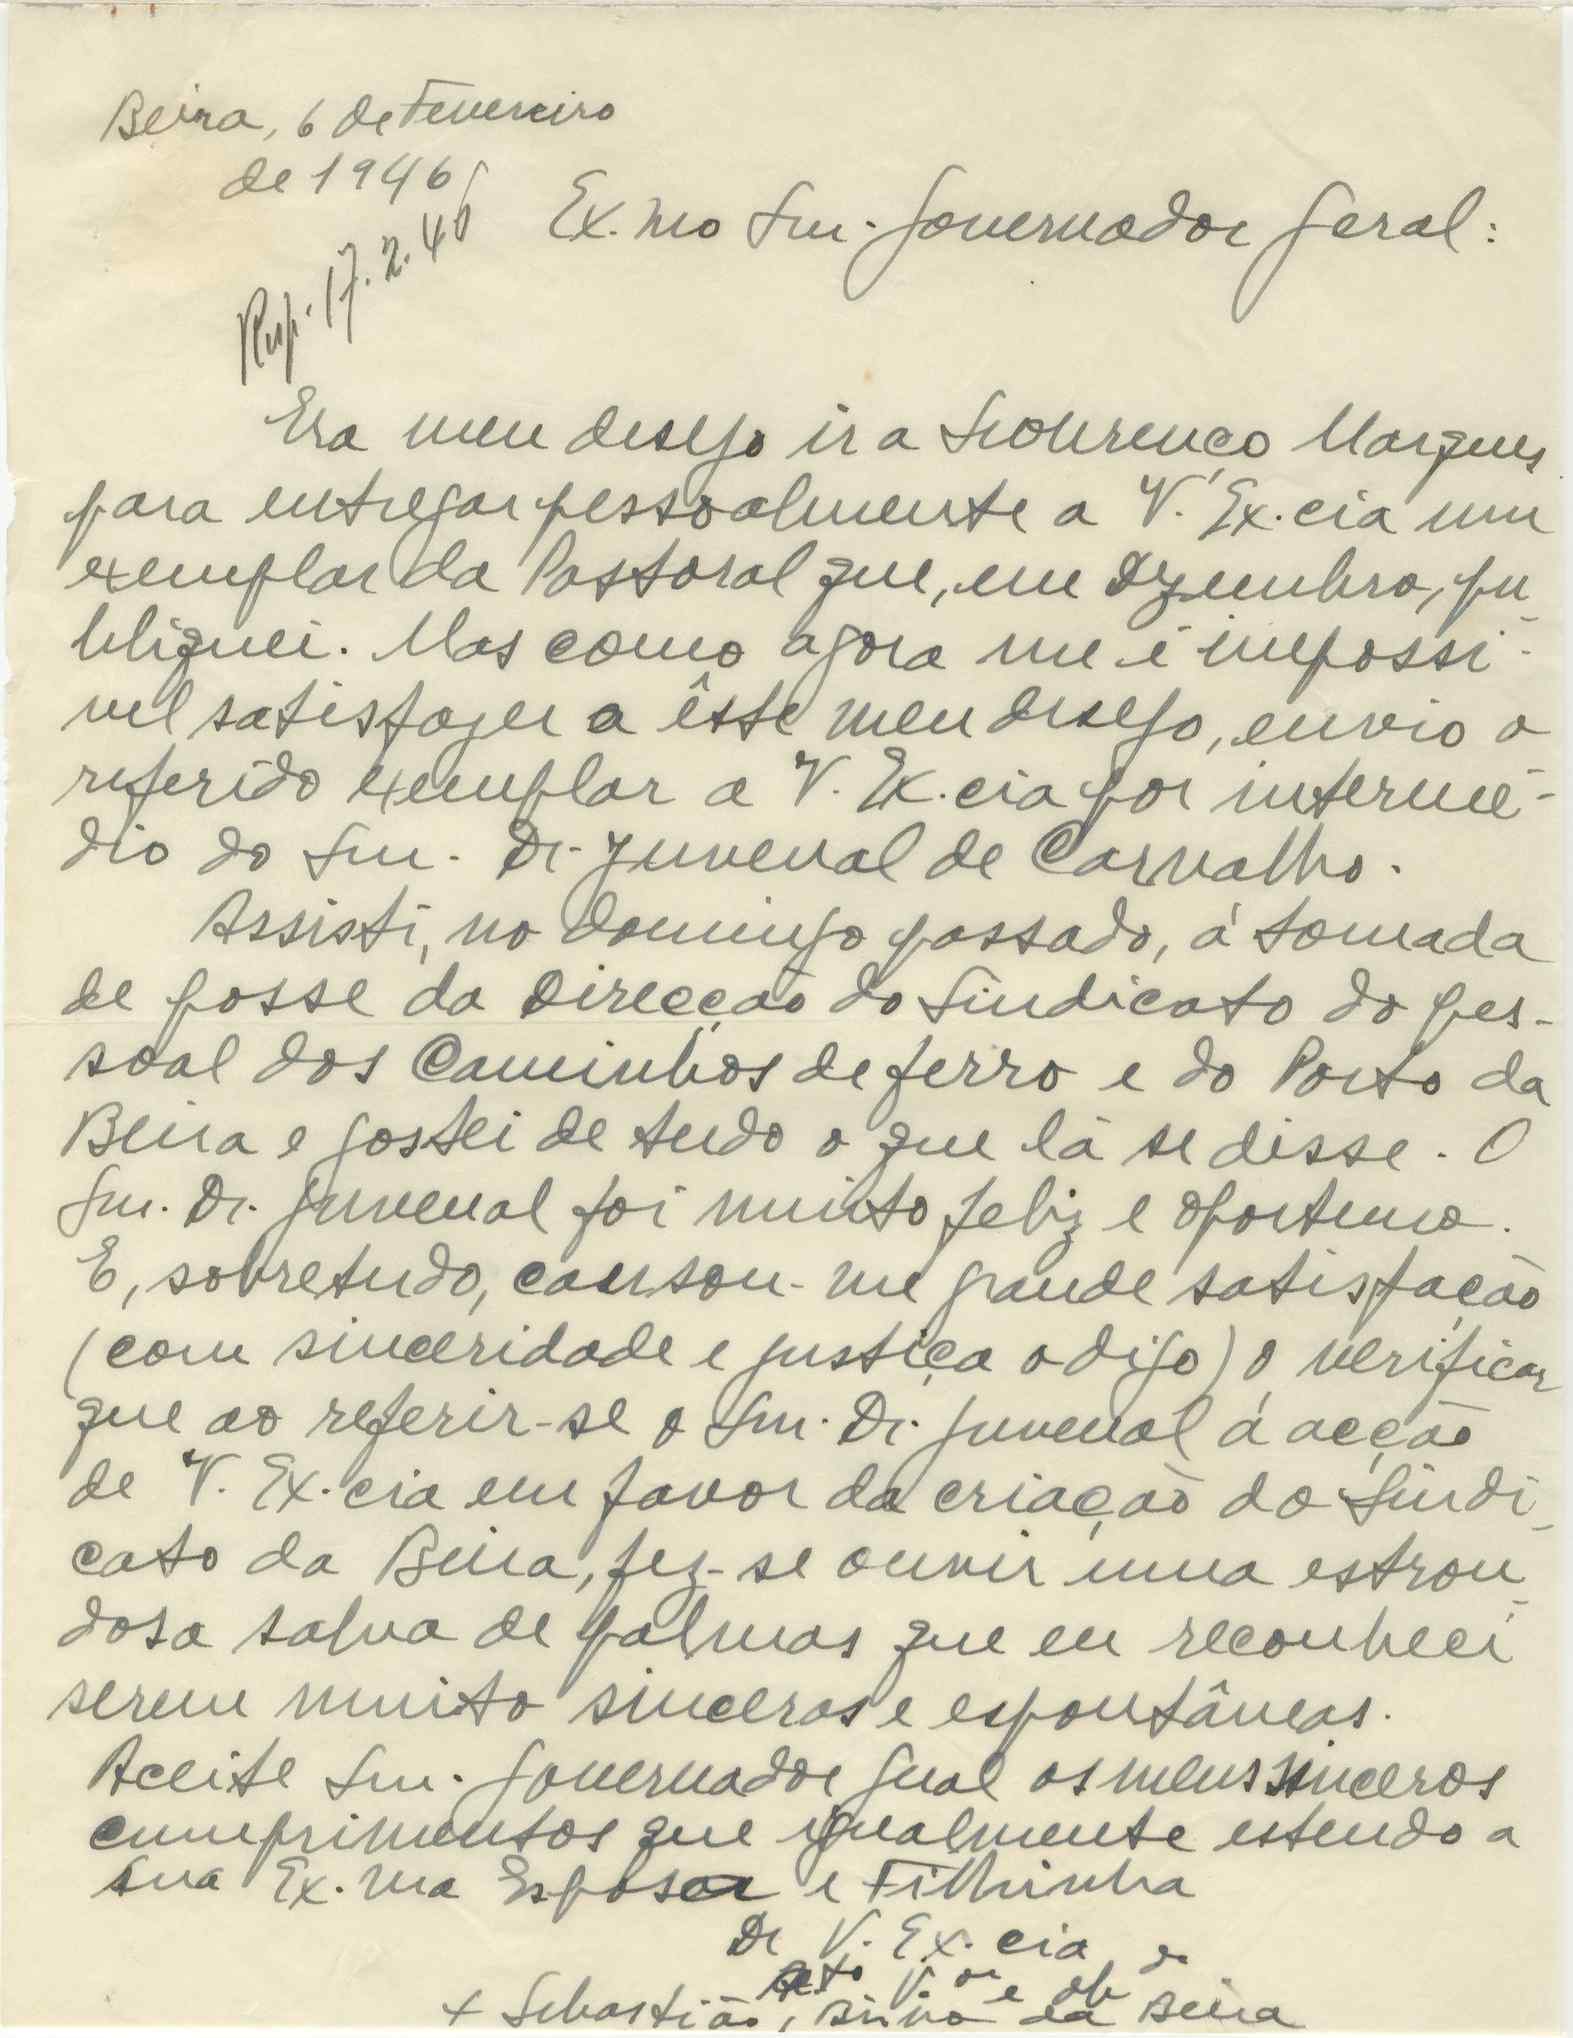 Beira, 6 de Fevereiro
de 1946
Resp. 17.2.46
Ex.mo Snr. Governador Geral:
Era meu desejo ir a Lourenço Marques
para entregar pessoalmente a V. Ex.cia um
exemplar da Pastoral que, em Dezembro, pu-
bliquei. Mas como agora me é impossi-
vel satisfazer a êste meu desejo, envio o
referido exemplar a V. Ex.cia por intermé-
dio do Snr. Dr. Juvenal de Carvalho.
Assisti, no domingo passado, á tomada
de posse da Direcção do Sindicato do pes-
soal dos Caminhos de ferro e do Porto da
Beira e gostei de tudo o que lá se disse. O
Snr. Dr. Juvenal foi muito feliz e oportuno.
E, sobretudo, causou-me grande satisfação
(com sinceridade e justiça o digo) o verificar
que ao referir-se o Snr. Dr. Juvenal á acção
de V. Ex.cia em favor da criação do Sindi-
cato da Beira, fez-se ouvir uma estron-
dosa salva de palmas que eu reconheci
serem muito sinceras e espontâneas.
Aceite Snr. Governador Geral os meus sinceros
cumprimentos que igualmente estendo a
sua Ex.ma Esposa e Filhinha
De V. Ex.cia
Atto V.or e ob.do
+ Sebastião, Bispo da Beira